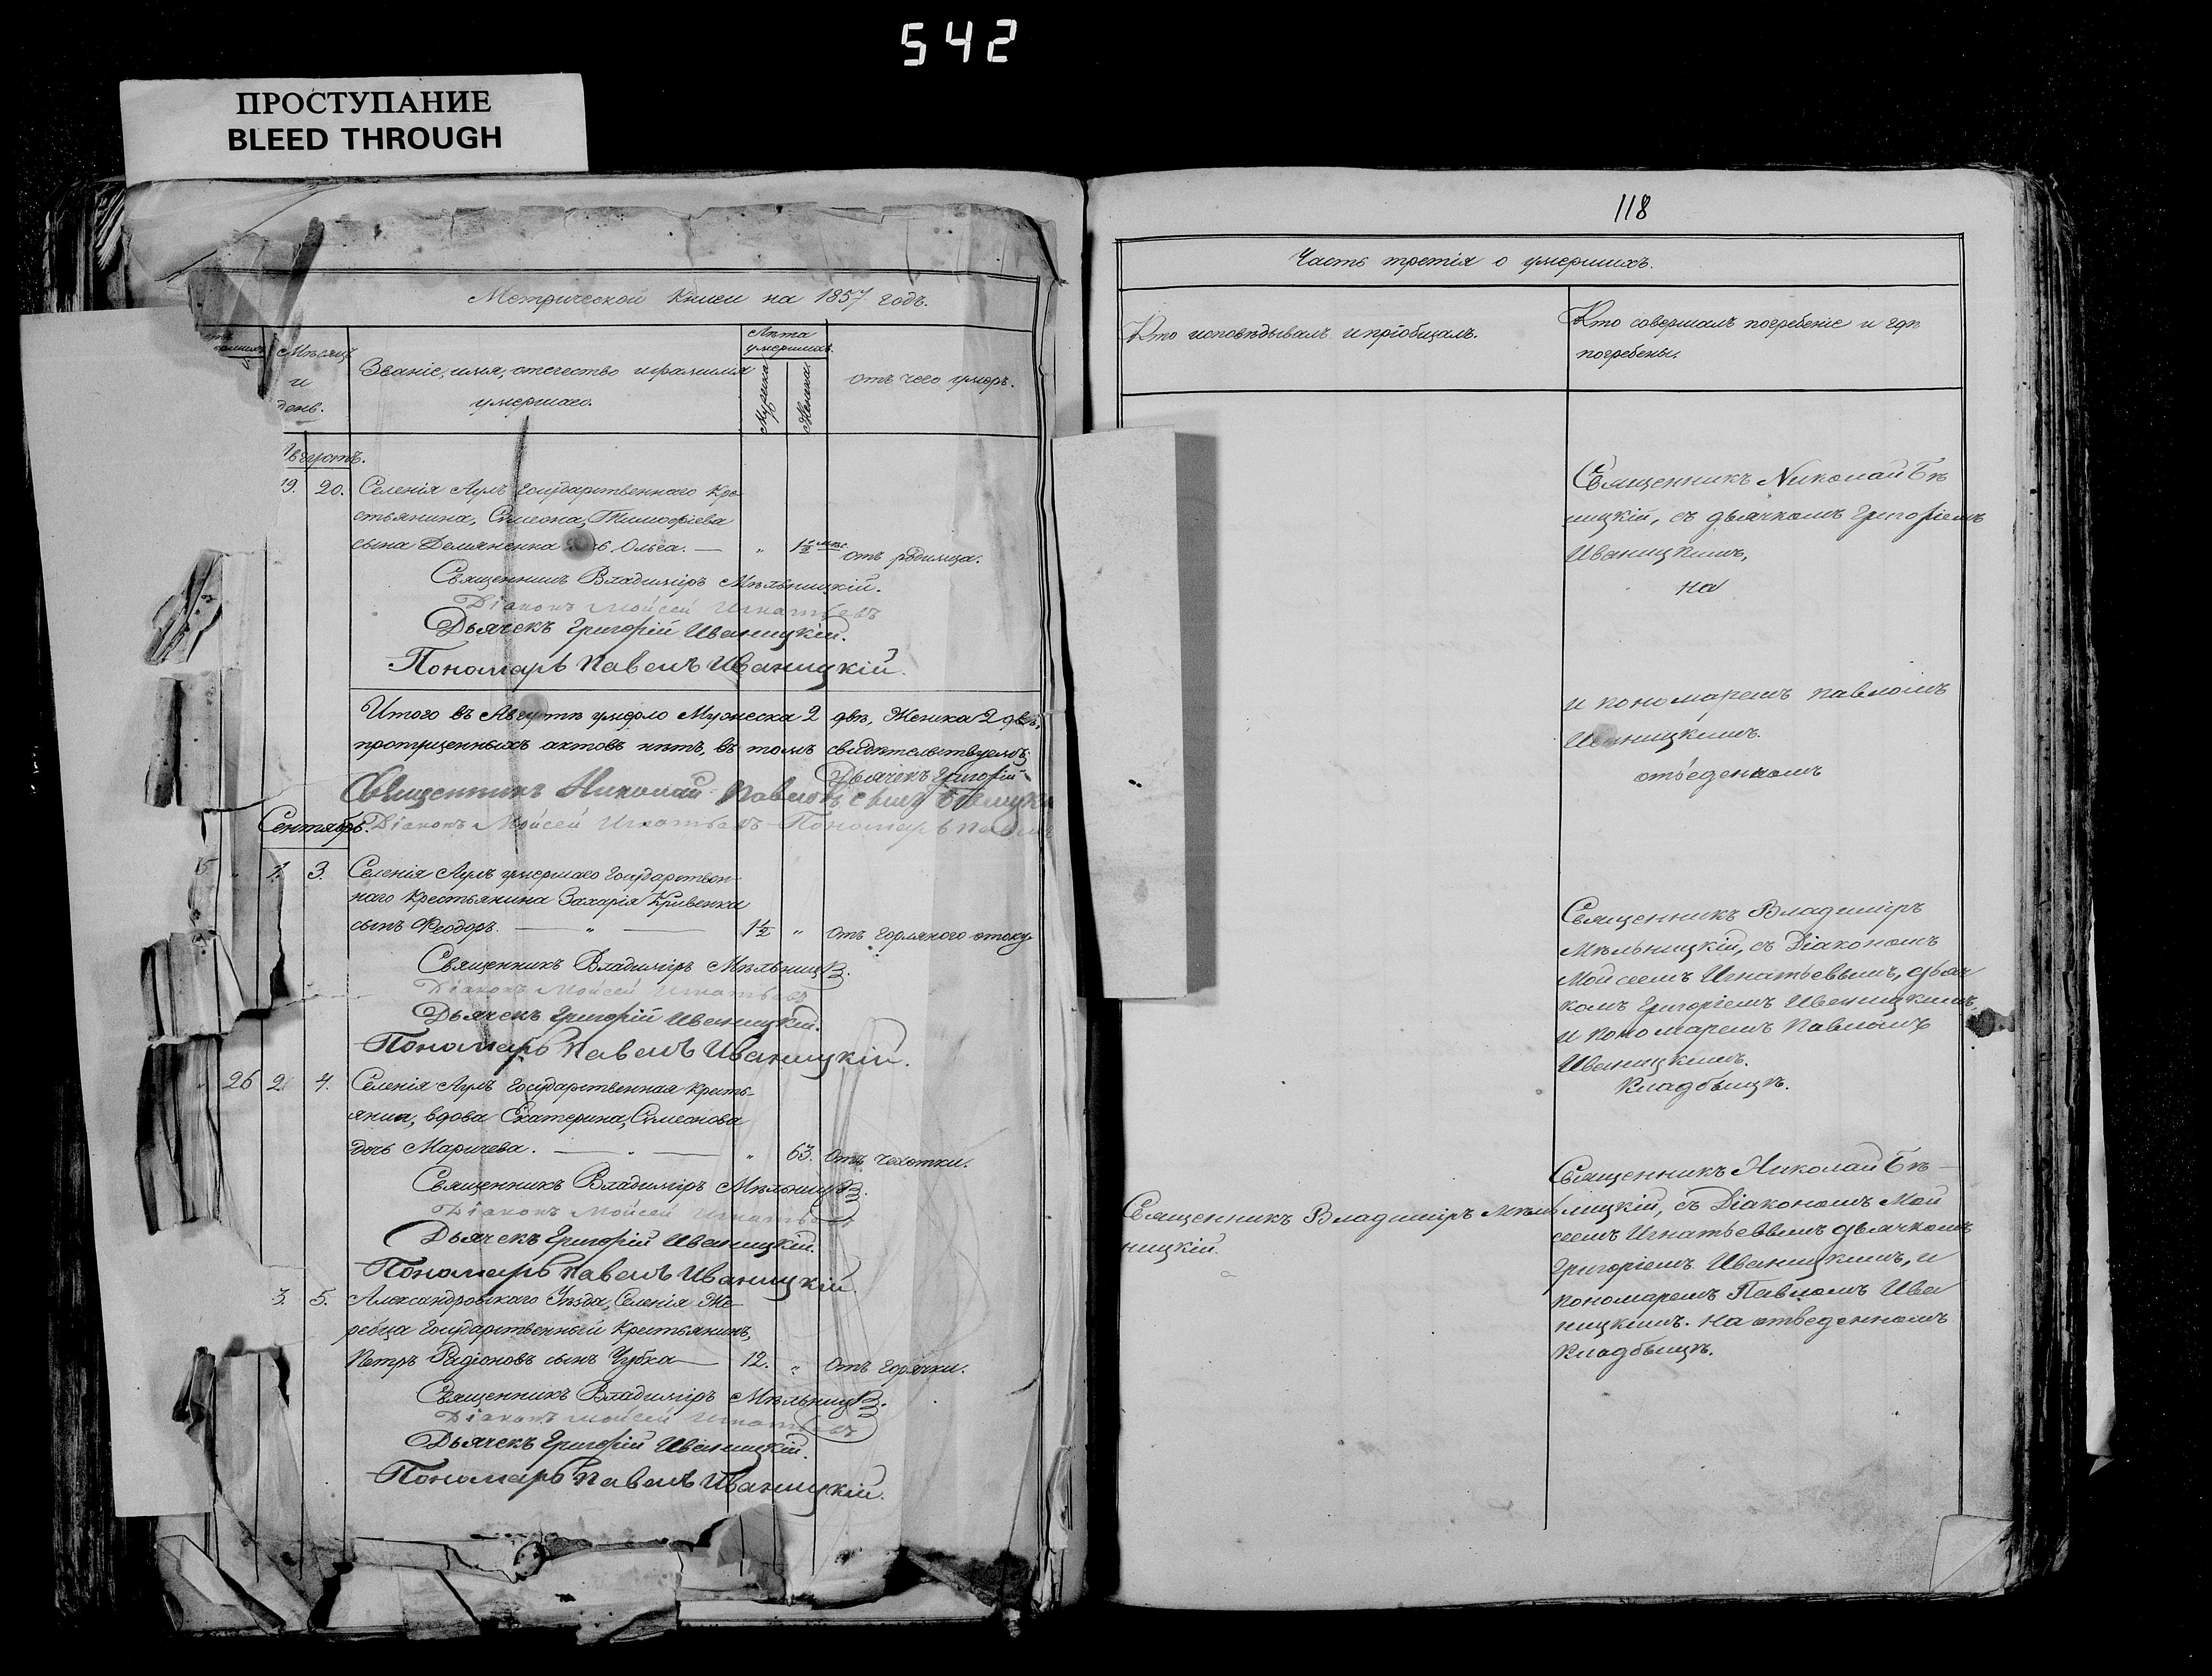 542
ПРОСТУПАНИЕ
BLEED THROUGH
Метрической Книги на 1857 годъ.
Мѣсяцъ
и
день.
Званіе, имя, отечество и фамилия
умершаго.
Лѣта
умершихъ.
Мужеска
Женска.
отъ чего умеръ.
Августъ.
19. 20. Селенія Аулъ Государственнаго Кре-
стьянина, Симеона, Тимофеіева
сына Демяненка Ольга. — " 1½ мѣс. отъ родимца.
Священникъ Владиміръ Мѣльницкій.
Діаконъ Мойсей Игнатьевъ
Дьячекъ Григорій Иваницкій.
Пономарь Павелъ Иваницкій.
Итого въ Августѣ умерло Мужеска 2 двѣ, Женска 2 двѣ,
пропущенныхъ актовъ нѣтъ, въ томъ свидѣтельствуемъ:
Дьячекъ Григорій
Священникъ Николай Павловъ сынъ
Сентябрь. Діаконъ Мойсей Игнатьевъ Пономарь Павелъ
15 " 1. 3. Селенія Аулъ умершаго Государствен-
наго Крестьянина Захарія Кривенка
сынъ Феодоръ. — " — 1½ " отъ горлянаго отоку.
Священникъ Владиміръ Мѣльниц
Діаконъ Мойсей Игнатьевъ
Дьячекъ Григорій Иваницкій.
Пономарь Павелъ Иваницкій.
" 26 2. 4. Селенія Аулъ Государственная Кресть-
янка, вдова Екатерина, Симеонова
дочь Маричева. — " — " 63. Отъ чехотки.
Священникъ Владиміръ Мѣльниц
Діаконъ Мойсей Игнатьевъ
Дьячекъ Григорій Иваницкій.
Пономарь Павелъ Иваницкій.
3. 5. Александровскаго Уѣзда, Селенія Же-
ребца Государственный Крестьянинъ,
Петръ Радіоновъ сынъ Чубка — 12. " Отъ горячки.
Священникъ Владиміръ Мѣльниц
Діаконъ Мойсей Игнатьевъ
Дьячекъ Григорій Иваницкій.
Пономарь Павелъ Иваницкій.
118
Часть третія о умершихъ.
Кто исповѣдывалъ и пріобщалъ.
Кто совершалъ погребеніе и гдѣ
погребены.
Священникъ Николай Бѣ
лицкій, съ дьячкомъ Григоріемъ
Иваницкимъ,
на
и пономаремъ Павломъ
Иваницкимъ.
отведенномъ
Священникъ Владиміръ
Мѣльницкій, съ Діакономъ
Мойсеемъ Игнатьевымъ, дьяч
комъ Григоріемъ Иваницкимъ,
и пономаремъ Павломъ
Иваницкимъ.
Кладбыщѣ.
Священникъ Владиміръ Мѣль
ницкій.
Священникъ Николай Бѣ-
лицкій, съ Діакономъ Мой
сеемъ Игнатьевымъ дьячкомъ
Григоріемъ Иваницкимъ, и
пономаремъ Павломъ Ива
ницкимъ. На отведенномъ
Кладбыщѣ.